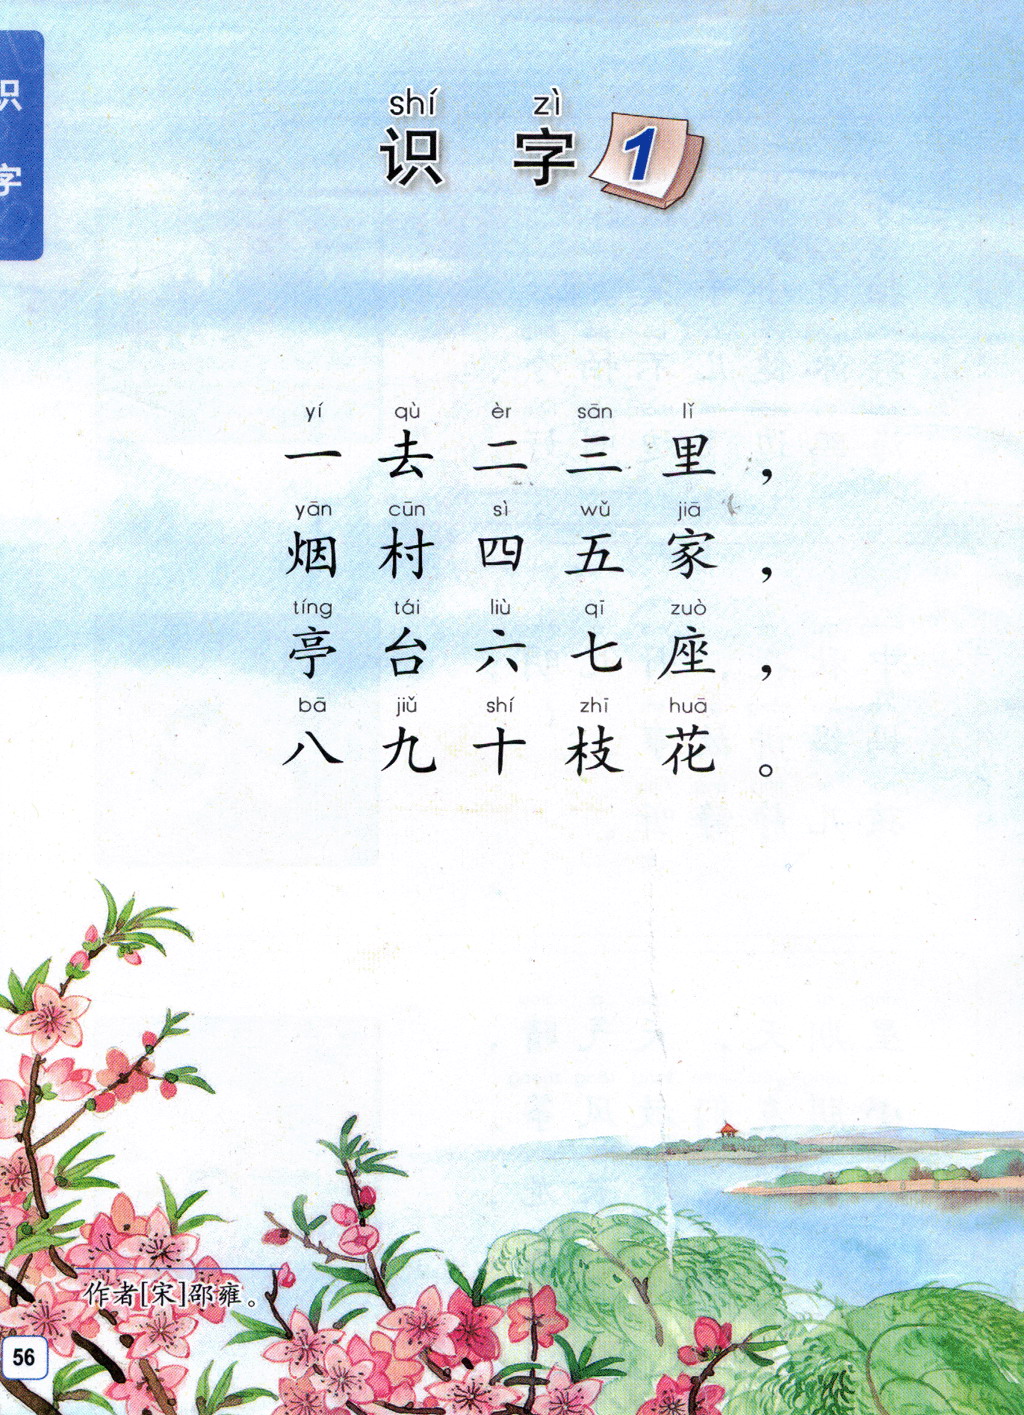 识字
shí zì
识字 1
yí qù èr sān lǐ
一去二三里，
yān cūn sì wǔ jiā
烟村四五家，
tíng tái liù qī zuò
亭台六七座，
bā jiǔ shí zhī huā
八九十枝花。
作者[宋]邵雍。
56